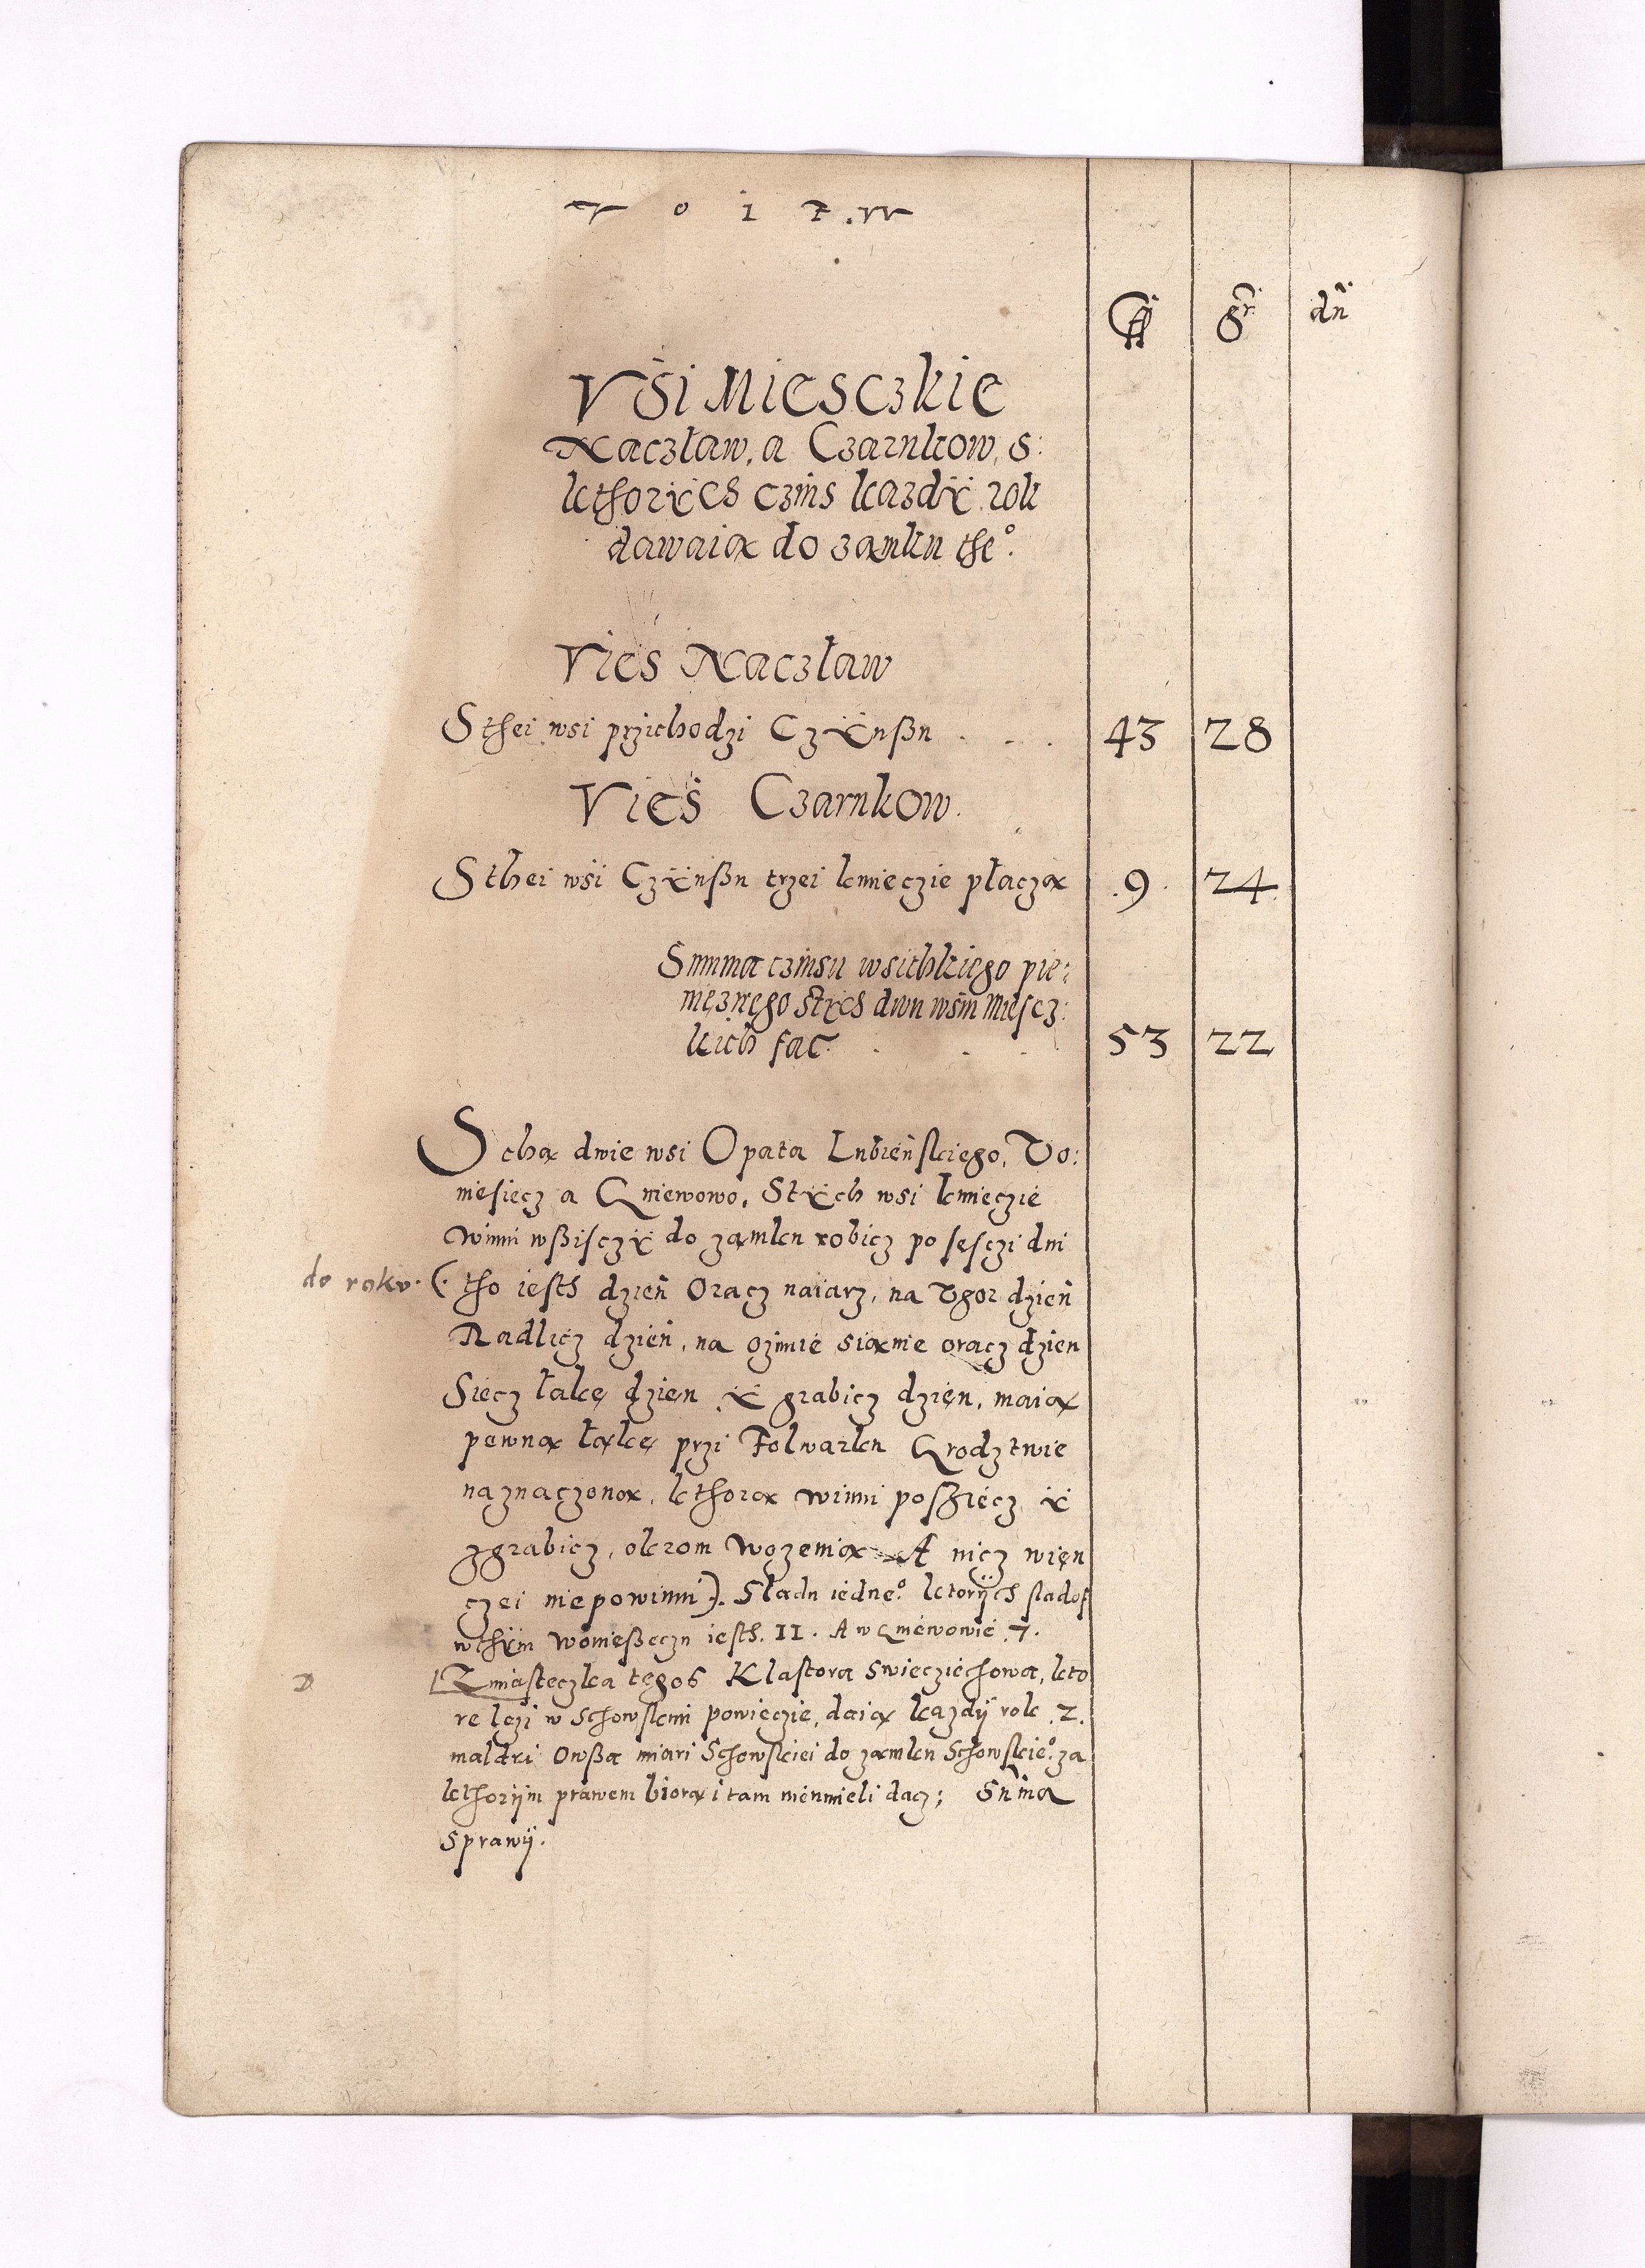 fl gr dn
Vśi Miesczkie
Naczław, a Czarnkow, s:
kthorÿch czins kazdÿ rok
dawaią do zamku the°.
Vies Naczław
Sthei wsi przichodzi Czÿnßu . . . 43 28
Vieś Czarnkow.
Sthei wśi Czÿnßu trzei kmieczie płaczą .9. 24
Summa czinsu wsithkiego pie:
nięznego stÿch dwu wśiu miescz:
kich fac. . . . 53 22
Sthą dwie wsi Opata Lubieńskiego, Vo:
niesiecz a Gniewowo, Stÿch wsi kmieczie
winni wßisczÿ do zamku robicz po sesczi dni
do roku. (. tho iesth dzień Oracz naiarz, na Vgor dzień
Radlicz dzień, na ozimie sianie oracz dzien
Siecz łakę dzien ÿ grabicz dzien, maią
pewną łąkę przi Folwarku Grodztwie
naznaczoną, kthorą winni posziecz ÿ
zgrabicz, okrom wozenia A nicz więn
czei niepowinni). Sladu iedne° ktorÿch slados
wthÿm Woniesseczu iesth. 11. A w Gniewowie .7.
D Zmiasteczka tegos Klastora Swiecziechowa, kto
re lezi w Schowskim powieczie, daią kazdÿ rok .2.
maldri Owßa miari Schowskiei do zamku Schowskie°. za
kthorÿm prawem biorą i tam nieumieli dacz; Suma
sprawÿ.